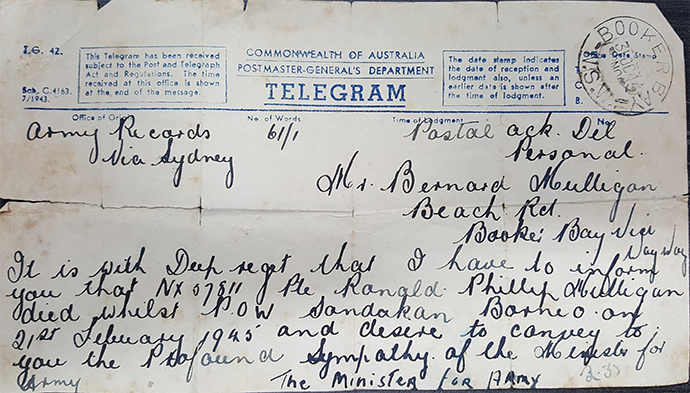 T.G. 42.
Sch. C.4163.
7/1943.
This Telegram has been received
subject to the Post and Telegraph
Act and Regulations. The time
received at this office is shown
at the end of the message.
COMMONWEALTH OF AUSTRALIA
POSTMASTER-GENERAL'S DEPARTMENT
TELEGRAM
The date stamp indicates
the date of reception and
lodgment also, unless an
earlier date is shown after
the time of lodgment.
Office Date Stamp
BOOKER BAY
N.S.W
C
B.
Office of Origin
No. of Words.
Time of Lodgment
No.
Army Records
Via Sydney
61/1
Postal ack. Del
Personal.
Mr. Bernard Mulligan
Beach Rd.
Booker Bay Via
Woy Woy
It is with Deep regret that I have to inform
you that NX 57811 Pte Ronald Phillip Mulligan
died whilst P.O.W Sandakan Borneo on
21st February 1945 and desire to convey to
you the Profound Sympathy of the Minister for
Army
The Minister for Army